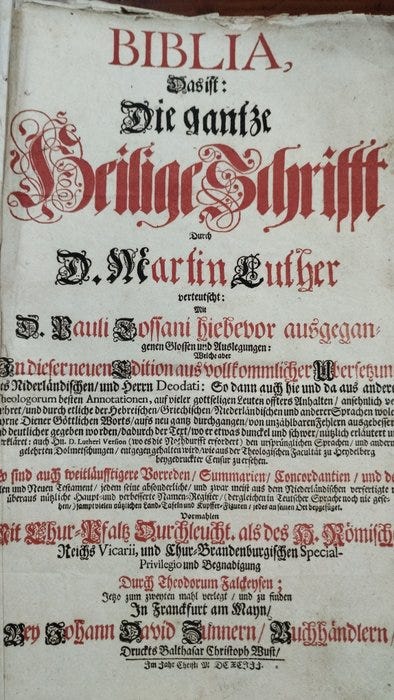 BIBLIA,
Das ist:
Die gantze
Heilige Schrifft
Durch
D. Martin Luther
verteutscht:
Mit
D. Pauli Tossani hiebevor ausgegan-
genen Glossen und Auslegungen:
Welche aber
In dieser neuen Edition aus vollkommlicher Ubersetzun
es Niderländischen/ und Herrn Deodati: So dann auch hie und da aus andere
Theologorum besten Annotationen, auf vieler gottseligen Leuten offters Anhalten/ ansehnlich ve
ehret/ und durch etliche der Hebreischen/ Griechischen/ Niederländischen und anderer Sprachen wole
Diener Göttlichen Worts/ auffs neu gantz durchgangen/ von unzählbaren Fehlern ausgebessert
deutlicher gegeben worden/ dadurch der Text/ wo er etwas dunckel und schwer/ nützlich erläutert u
erkläret: auch Hn. D. Lutheri Version (wo es die Nothdurfft erfordert) den ursprünglichen Sprachen/ und andern
gelehrten Dolmetschungen/ entgegen gehalten wird/ wie aus der Theologischen Facultät zu Heydelberg
beygedruckter Censur zu ersehen.
So sind auch weitläufftigere Vorreden/ Summarien/ Concordantien/ und de
ten und Neuen Testament/ jedem seine absonderliche/ und zwar meist aus dem Niderländischen verfertigte u
überaus nützliche Haupt- und verbesserte Namen-Register/ (dergleichen Teutscher Sprach noch nie gese-
hen/) sampt vielen nützlichen Land-Tafeln und Kupffer-Figuren/ jedes an seinen Ort beygefüget.
Vormahlen
Mit Chur-Pfaltz Durchleucht. als des H. Römische
Reichs Vicarii, und Chur-Brandenburgischen Special-
Privilegio und Begnadigung
Durch Theodorum Falckeysen:
Jetzo zum zweyten mahl verlegt/ und zu finden
In Franckfurt am Mayn/
Bey Johann David Zunnern/ Buchhändlern/
Druckts Balthasar Christoph Wust/
Im Jahr Christi M DCXCIII.